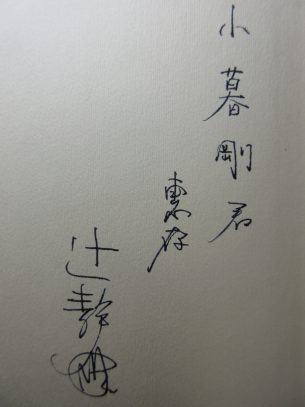 小暮剛君
惠存
辻静雄